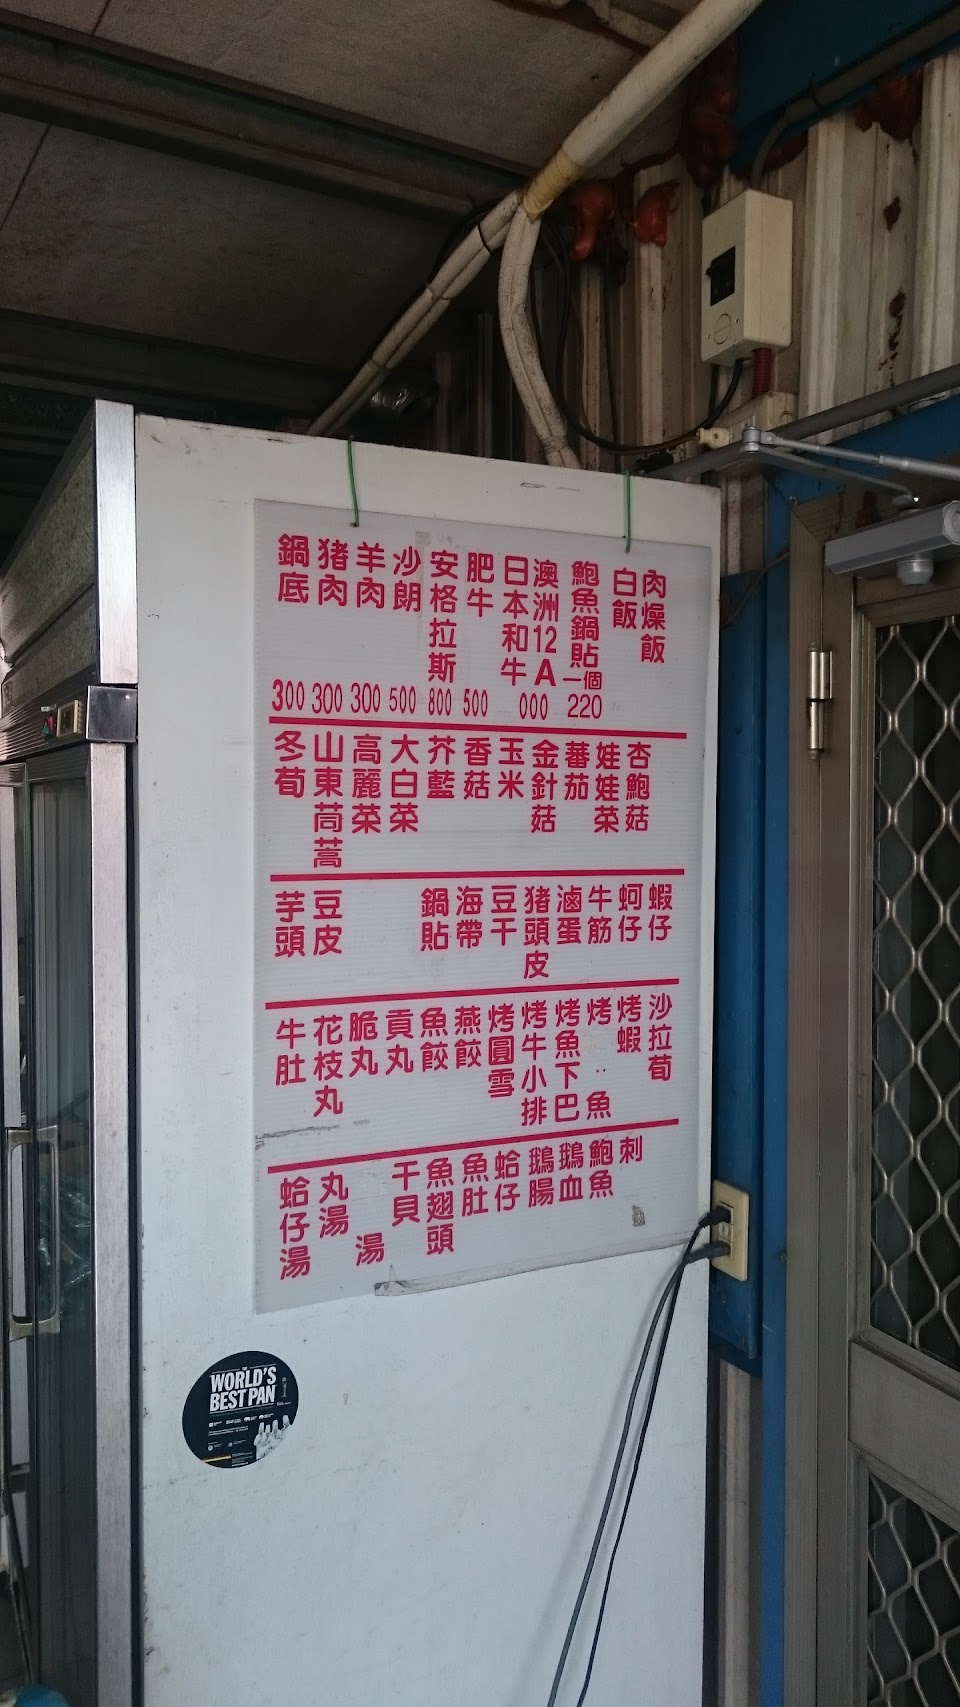 鍋底 300
猪肉 300
羊肉 300
沙朗 500
安格拉斯 800
肥牛 500
日本和牛
澳洲12A
000
鮑魚鍋貼一個 220
白飯
肉燥飯
冬荀
山東茼蒿
高麗菜
大白菜
芥藍
香菇
玉米
金針菇
蕃茄
娃娃菜
杏鮑菇
芋頭
豆皮
鍋貼
海帶
豆干
猪頭皮
滷蛋
牛筋
蚵仔
蝦仔
牛肚
花枝丸
脆丸
貢丸
魚餃
燕餃
烤圓雪
烤牛小排
烤魚下巴
烤 魚
烤蝦
沙拉荀
蛤仔湯
丸湯
湯
干貝
魚翅頭
魚肚
蛤仔
鵝腸
鵝血
鮑魚
刺
THE
WORLD'S
BEST PAN